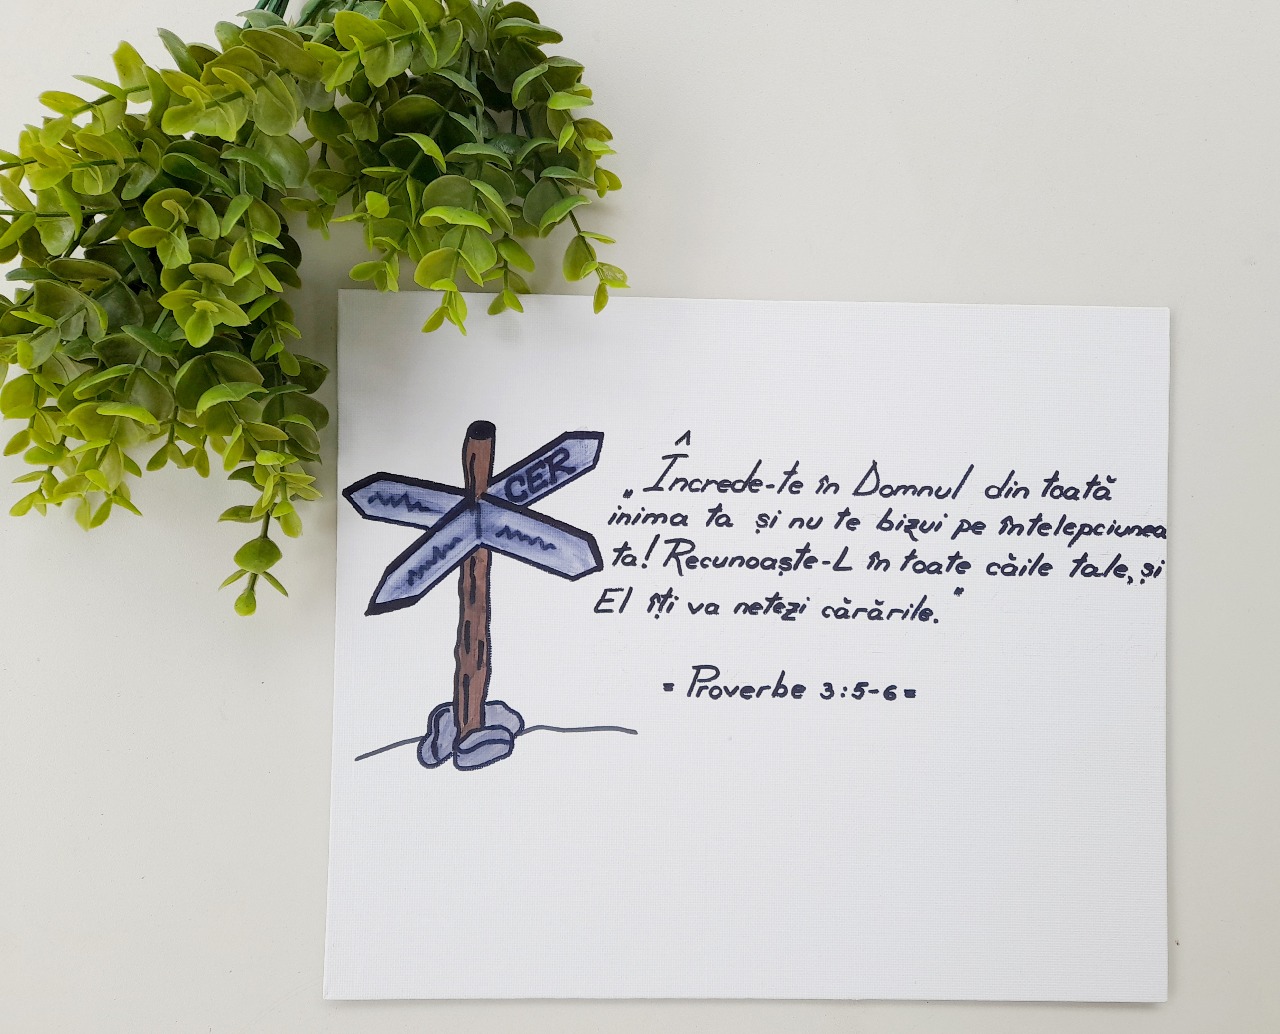 CER
„Încrede-te în Domnul din toată
inima ta și nu te bizui pe întelepciunea
ta! Recunoaște-L în toate căile tale, și
El îți va netezi cărările.”
= Proverbe 3:5-6 =